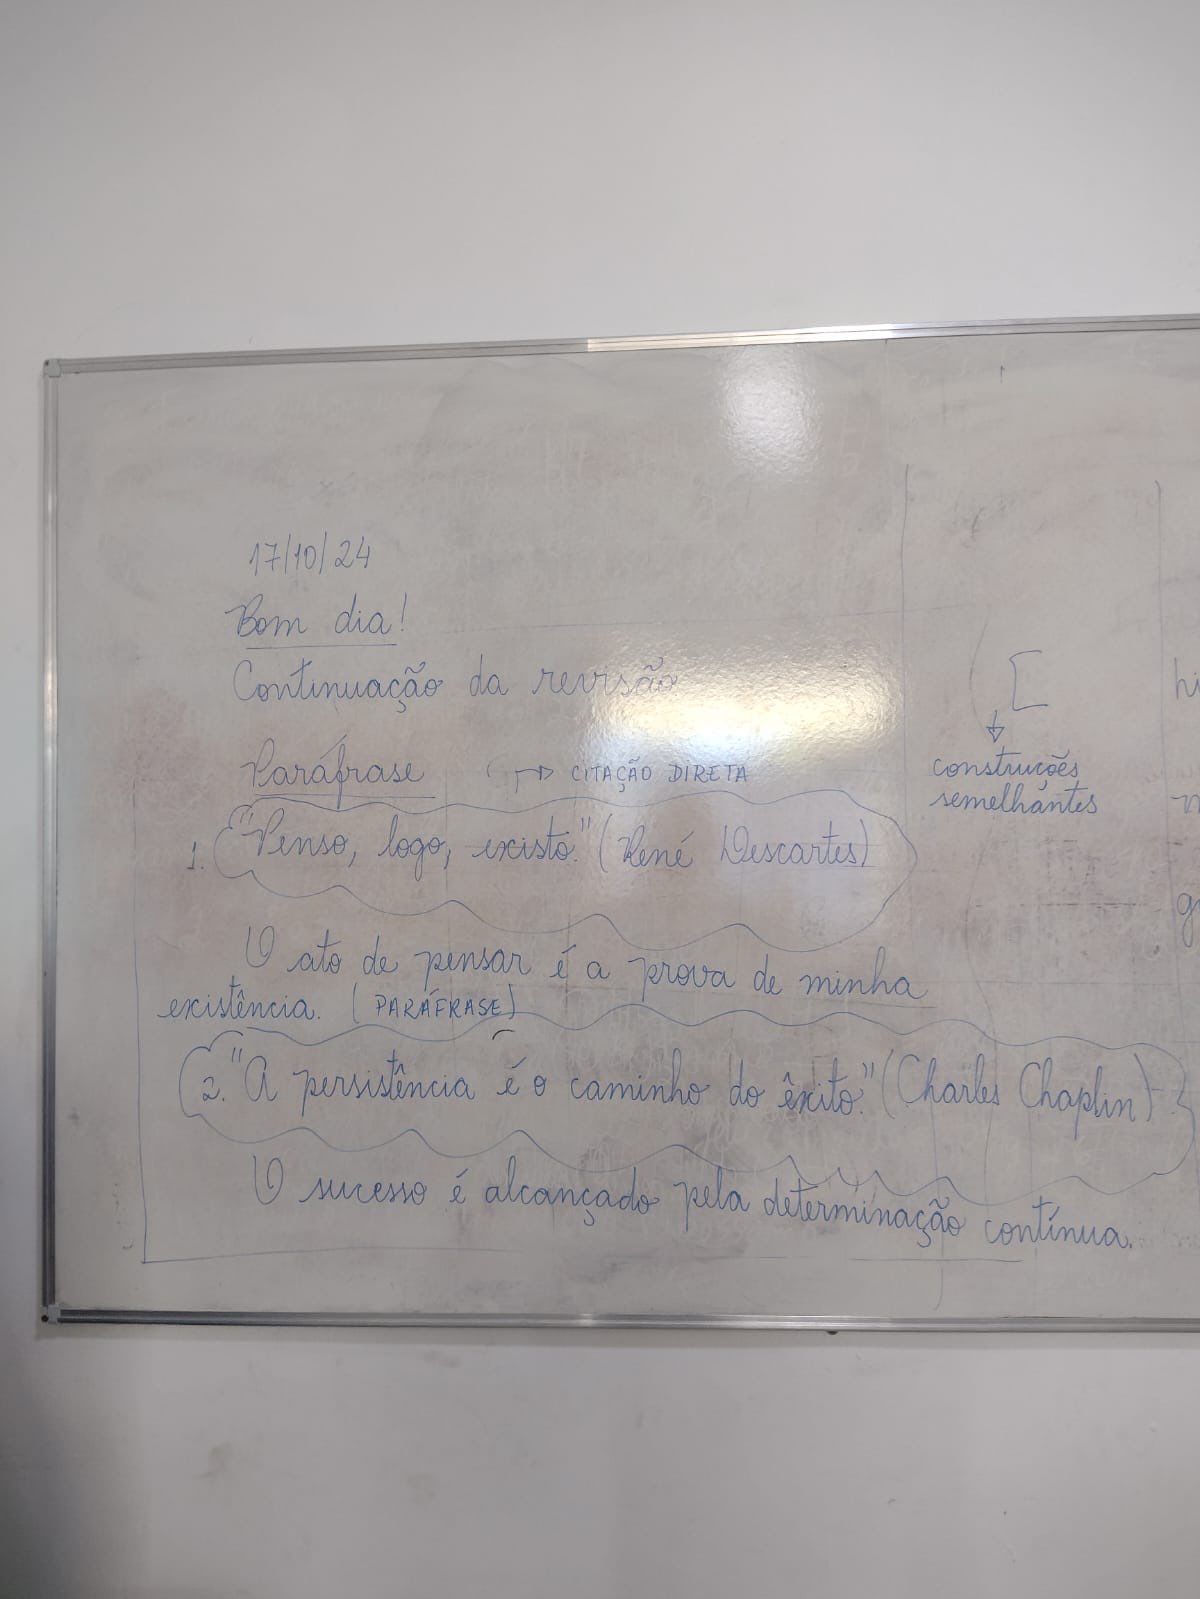 17/10/24
Bom dia!
Continuação da revisão
Paráfrase
CITAÇÃO DIRETA
1. "Penso, logo, existo." (René Descartes)
O ato de pensar é a prova de minha
existência. (PARÁFRASE)
2. "A persistência é o caminho do êxito." (Charles Chaplin)
O sucesso é alcançado pela determinação contínua.
construções
semelhantes